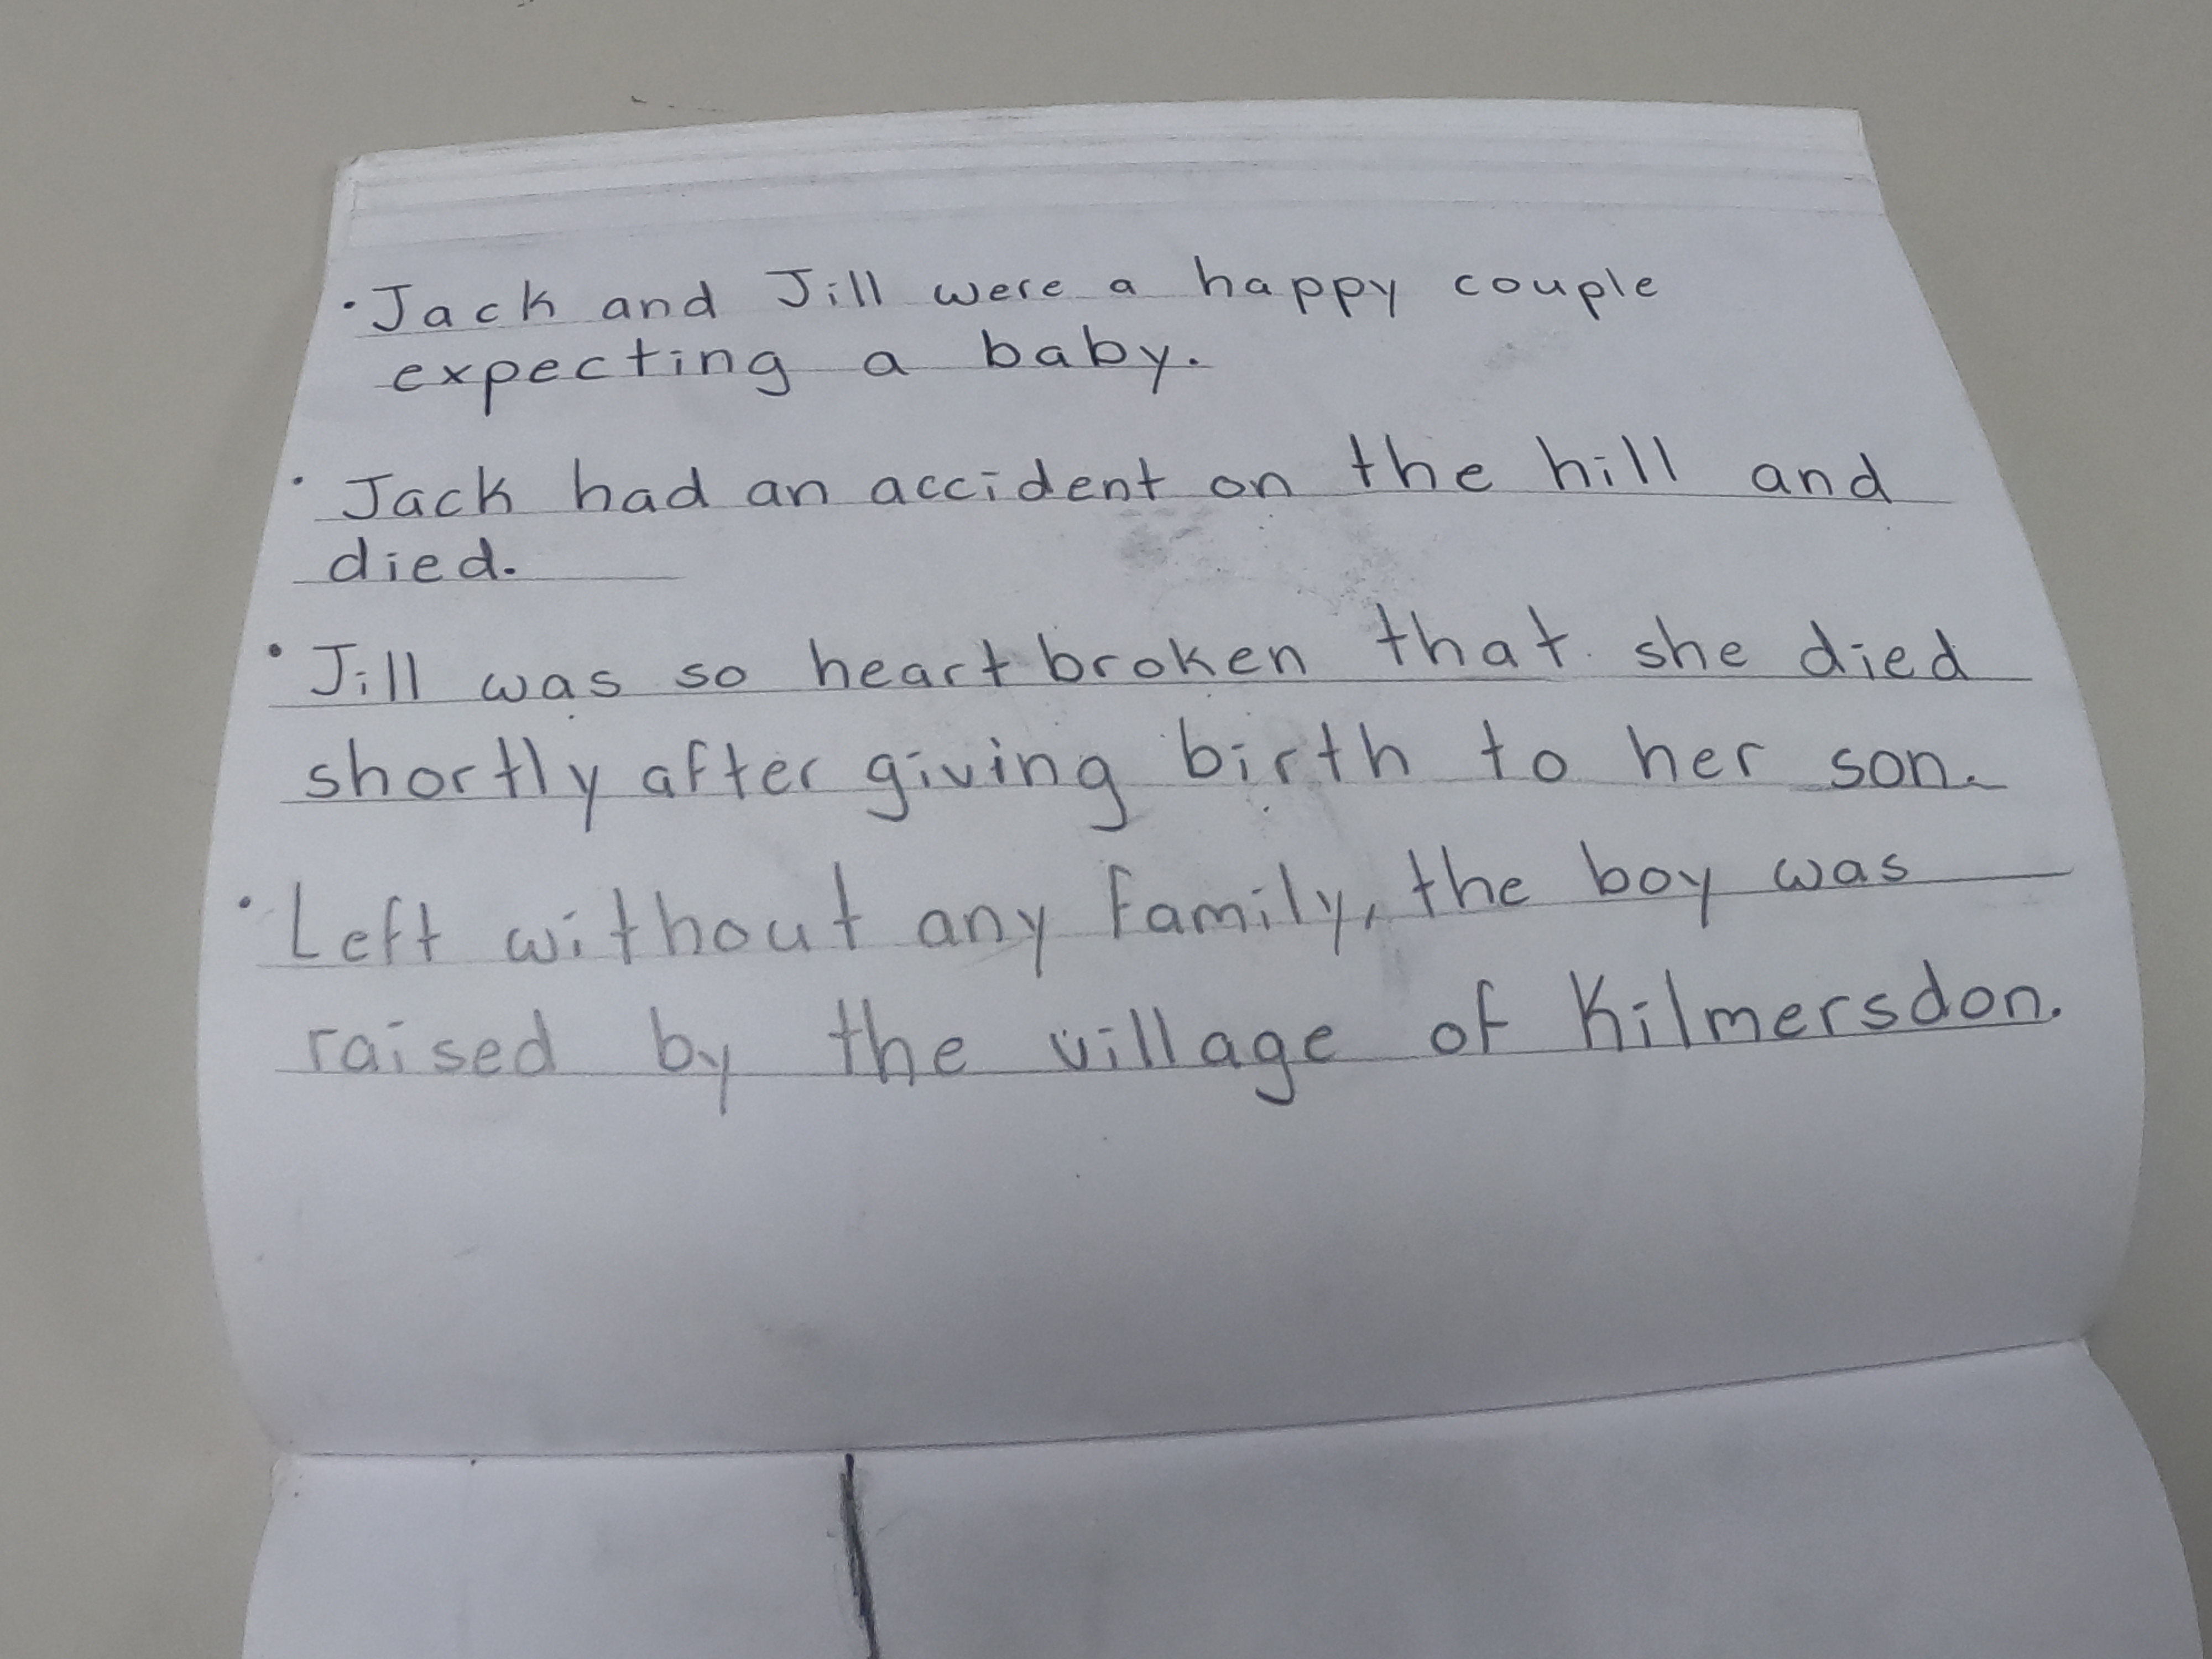 · Jack and Jill were a happy couple
expecting a baby.
· Jack had an accident on the hill and
died.
· Jill was so heart broken that she died
shortly after giving birth to her son.
· Left without any family, the boy was
raised by the village of Kilmersdon.